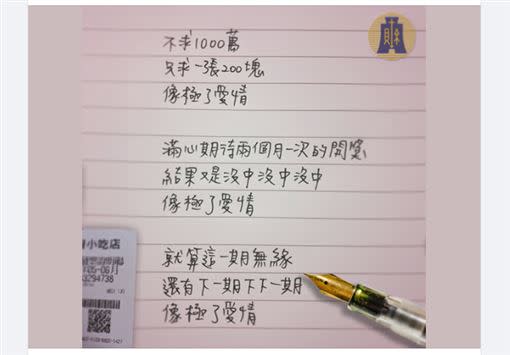 不求1000萬
只求一張200塊
像極了愛情
滿心期待兩個月一次的開獎
結果又是沒中沒中沒中
像極了愛情
就算這一期無緣
還有下一期下下一期
像極了愛情
小吃店
05-06月
3294738